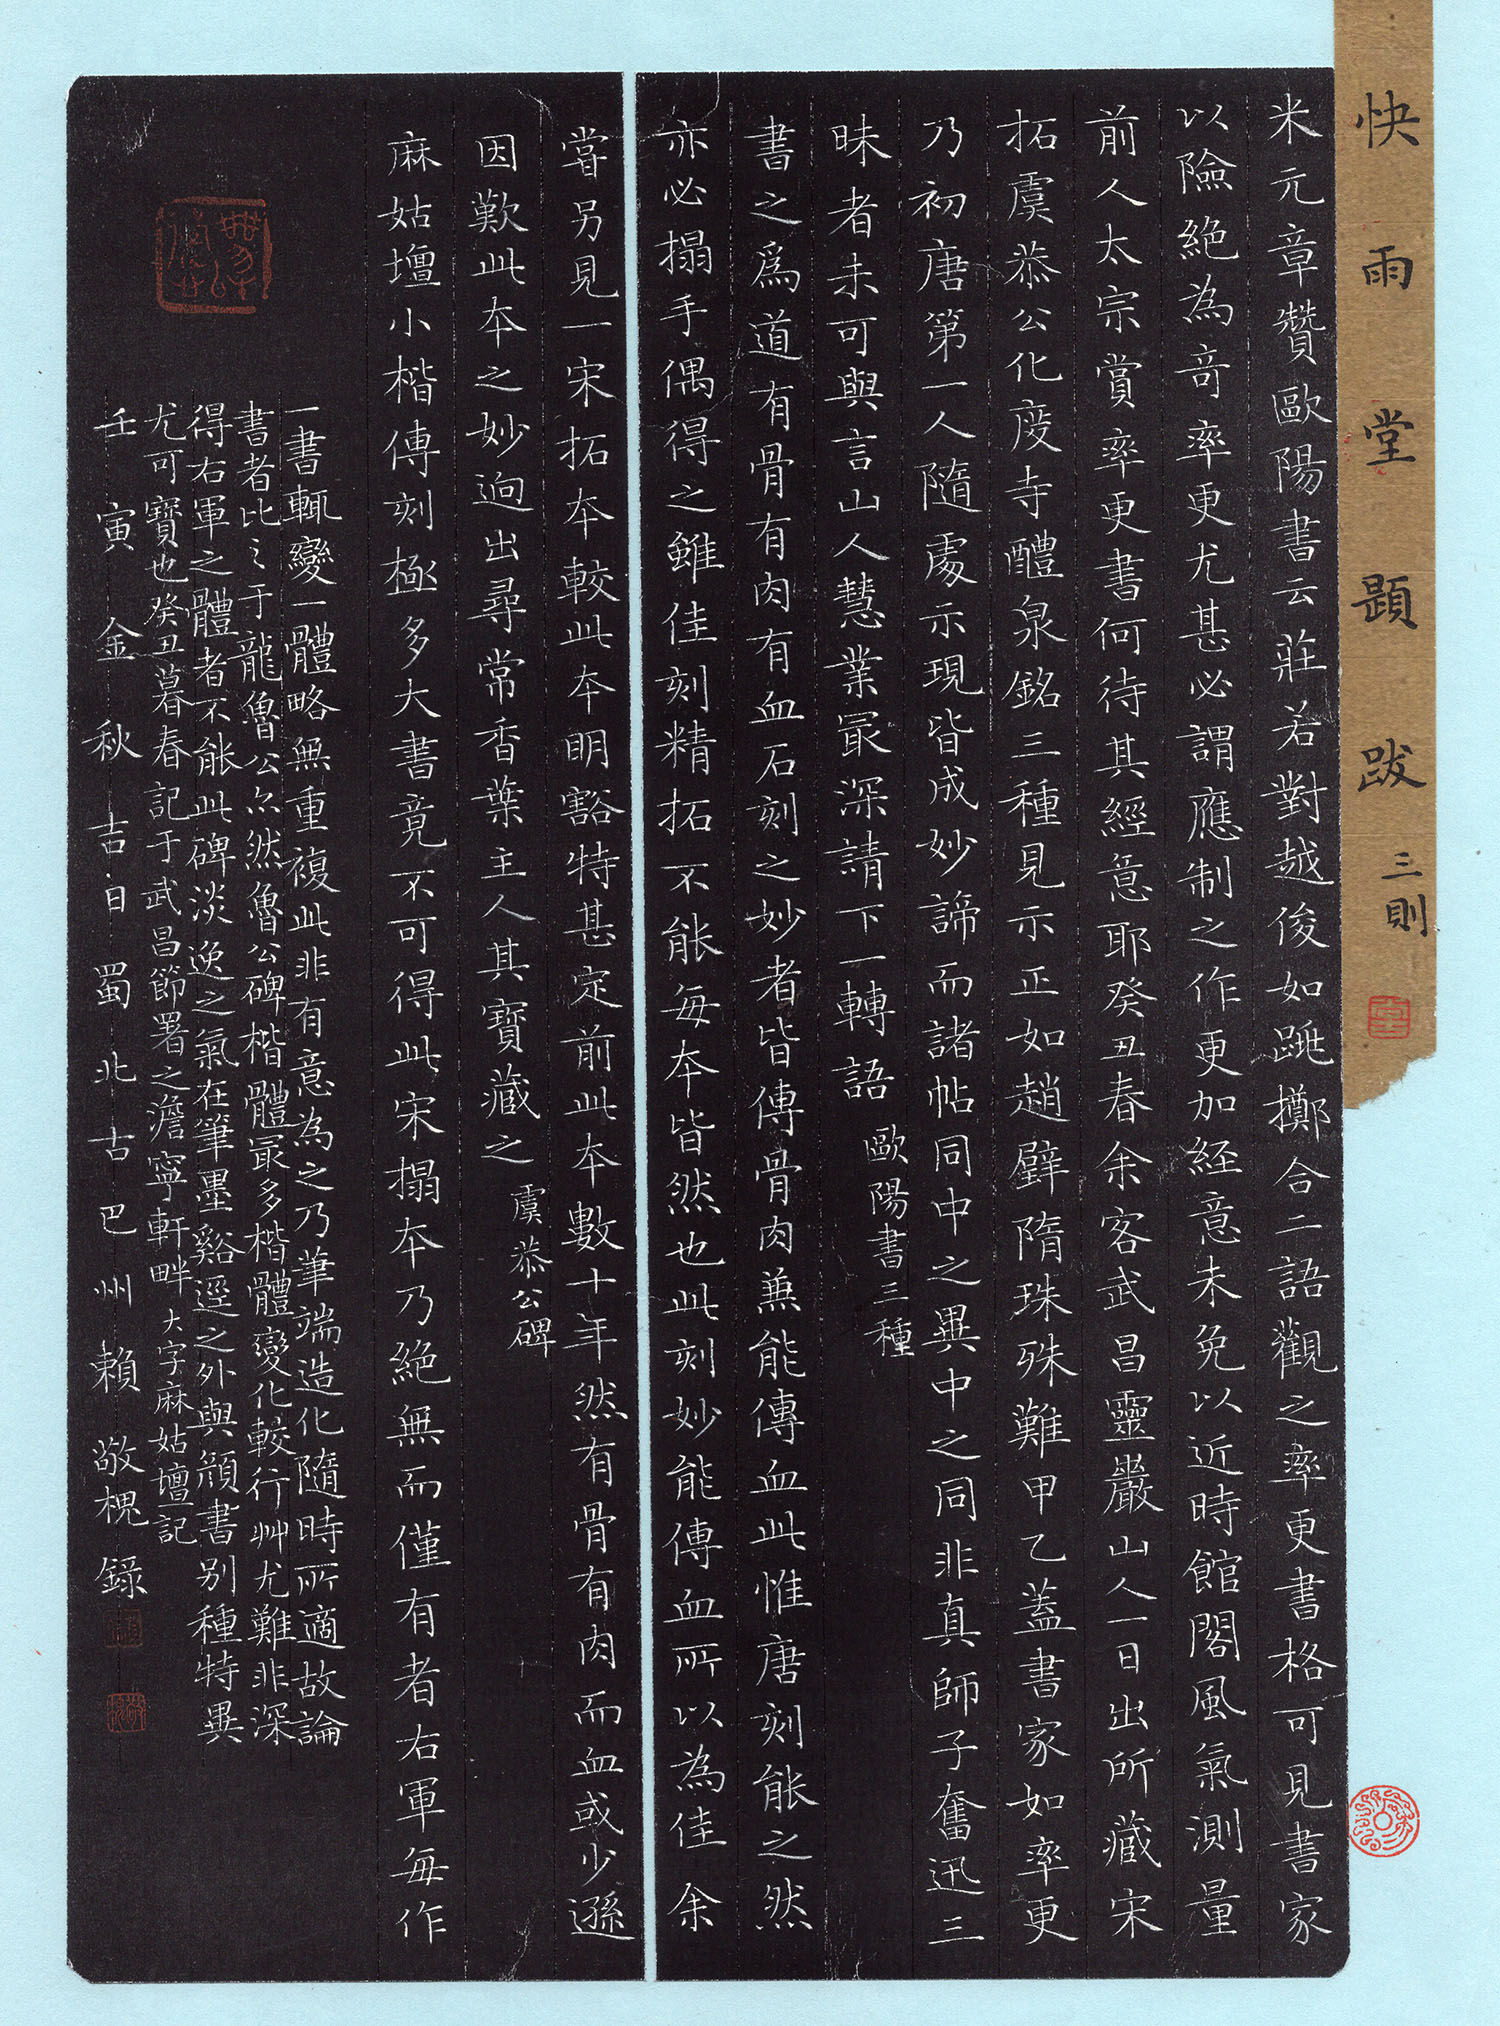 快雨堂題跋
三則
米元章贊歐陽書云莊若對越俊如跳擲合二語觀之率更書格可見書家
以險絶為奇率更尤甚必謂應制之作更加經意未免以近時館閣風氣測量
前人太宗賞率更書何待其經意耶癸丑春余客武昌靈巖山人一日出所藏宋
拓虞恭公化度寺醴泉銘三種見示正如趙璧隋珠殊難甲乙蓋書家如率更
乃初唐第一人隨處示現皆成妙諦而諸帖同中之異中之同非真師子奮迅三
昧者未可與言山人慧業最深請下一轉語
歐陽書三種
書之為道有骨有肉有血石刻之妙者皆傳骨肉兼能傳血此惟唐刻能之然
亦必搨手偶得之雖佳刻精拓不能每本皆然也此刻妙能傳血所以為佳余
嘗另見一宋拓本較此本明豁特甚定前此本數十年然有骨有肉而血或少遜
因歎此本之妙迥出尋常香葉主人其寶藏之
虞恭公碑
麻姑壇小楷傳刻極多大書竟不可得此宋搨本乃絶無而僅有者右軍每作
一書輒變一體略無重複此非有意為之乃筆端造化隨時所適故論
書者比之于龍魯公亦然魯公碑楷體最多楷體變化較行艸尤難非深
得右軍之體者不能此碑淡逸之氣在筆墨谿逕之外與顔書别種特異
尤可寶也癸丑暮春記于武昌節署之澹寧軒畔
大字麻姑壇記
壬寅金秋吉日蜀北古巴州賴敬槐錄